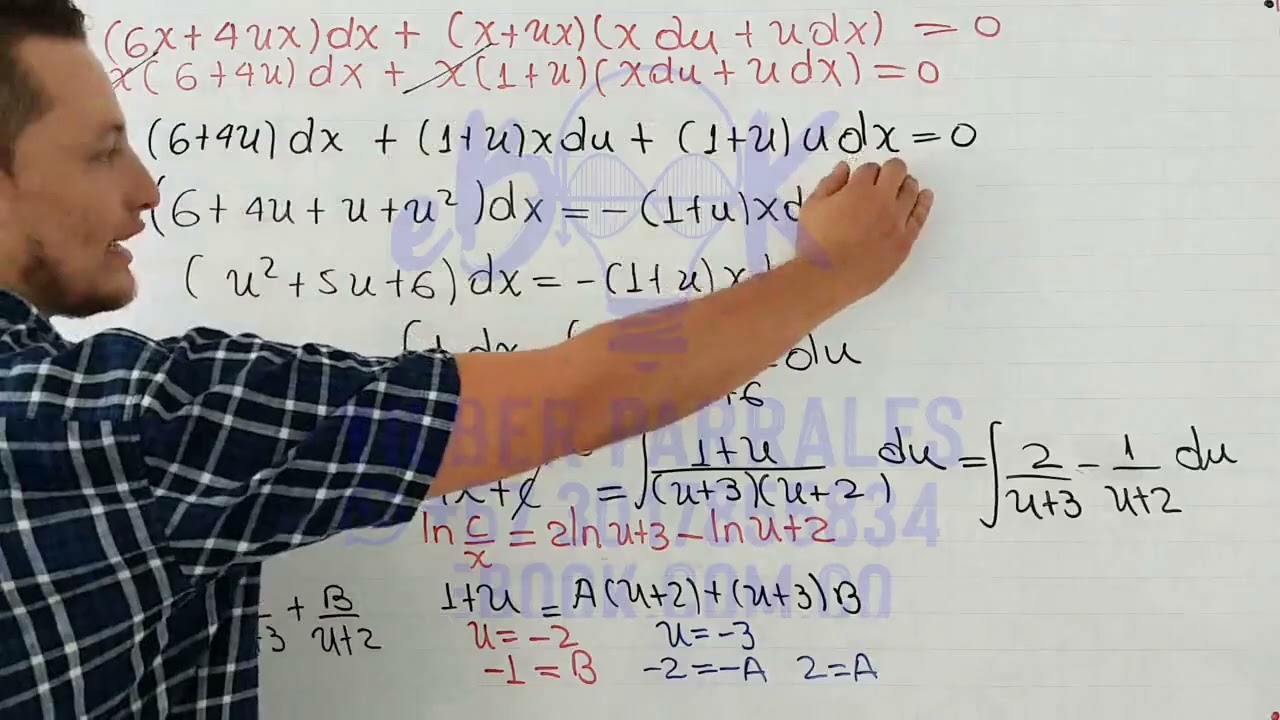 (6x+4ux)dx + (x+ux)(x du + u dx) = 0
x(6+4u)dx + x(1+u)(xdu + u dx) = 0
(6+4u)dx + (1+u)xdu + (1+u)udx = 0
(6+4u+u+u²)dx = -(1+u)xd
(u²+5u+6)dx = -(1+u)x
dx du
+6
x+c = ∫ 1+u/(u+3)(u+2) du = ∫ 2/u+3 - 1/u+2 du
ln c/x = 2ln u+3 - ln u+2
+ B/u+2 1+u = A(u+2)+(u+3)B
u=-2 u=-3
-1=B -2=-A 2=A
EBOOK.COM.CO